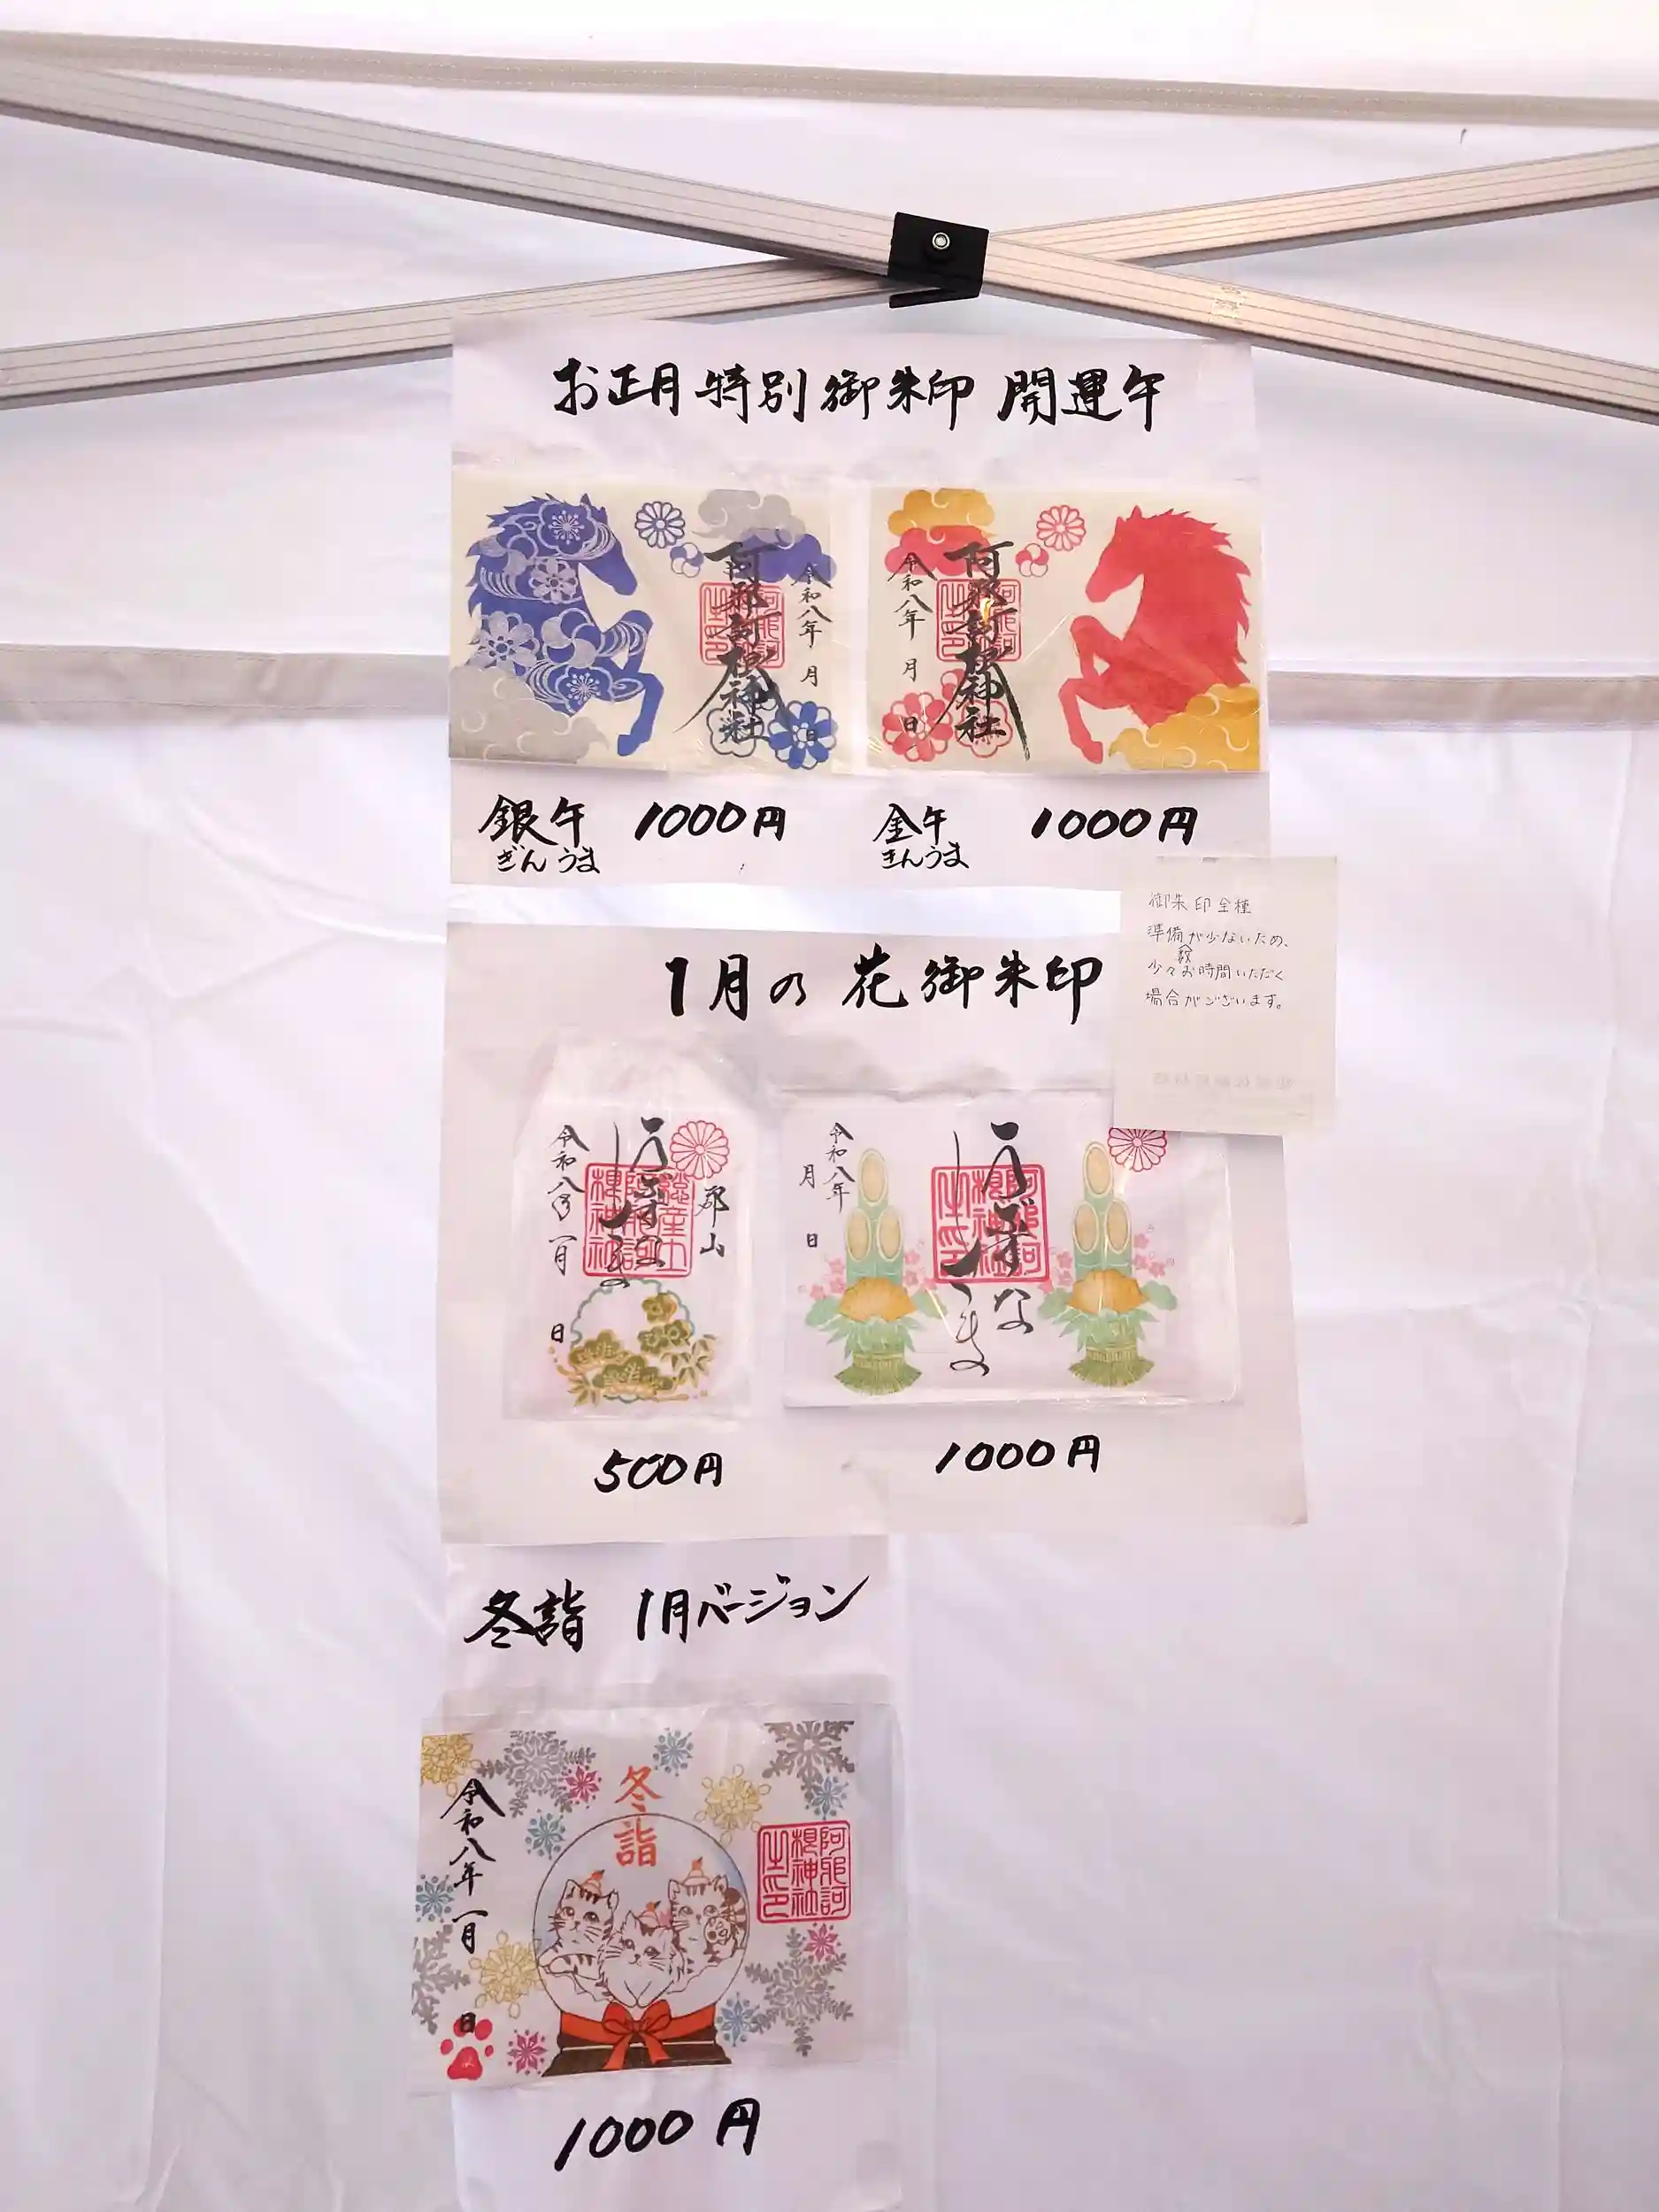 お正月特別御朱印 開運午
阿邪訶根神社
令和八年 月 日
令和八年 月 日
阿邪訶根神社
銀午 1000円
ぎんうま
金午 1000円
きんうま
御朱印全種
準備数が少ないため、
少々お時間いただく
場合がございます。
1月の花御朱印
郡山
うぶすなさま
令和八年 一月 日
うぶすなさま
令和八年
月 日
500円
1000円
冬詣 1月バージョン
冬詣
阿邪訶
根神社
之印
令和八年 一月 日
1000円